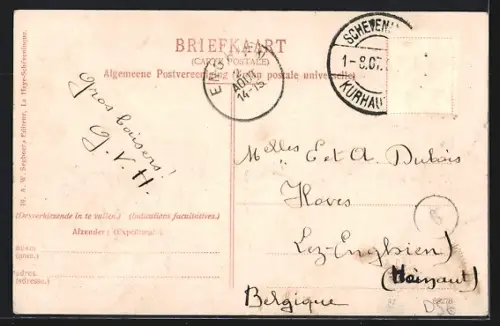 BRIEFKAART
(CARTE POSTALE)
Algemeene Postvereeniging Union postale universelle
SCHEVEN
1-8.07.
KURHAU
ENGHIEN
2
AOUT
14-15
Gros baisers!
G.V.H.
Melles E et A. Dubois
Hoves
Lez-Enghien)
(Hainaut)
Belgique
(Desverkiezende in te vullen.) (Indications facultatives.)
Afzender: (Expéditeur):
Naam
(Nom.)
Adres
(Adresse.)
W. A. W. Segboer's Editeur, La Haye-Schéveningue.
8
DS6